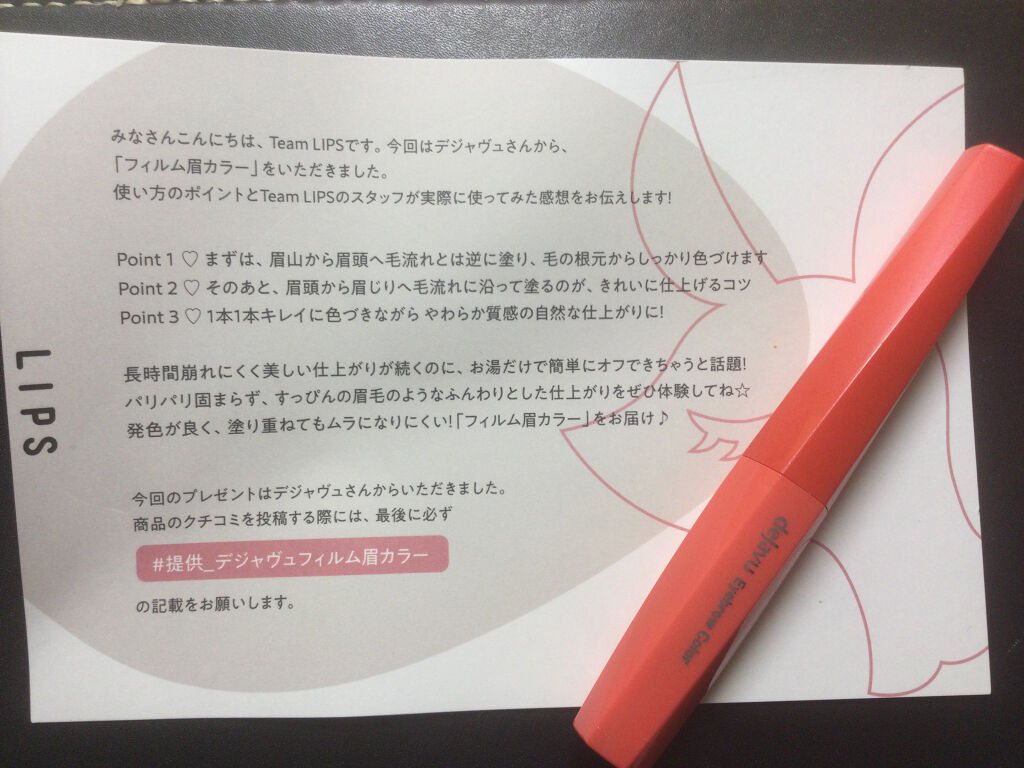 みなさんこんにちは、Team LIPSです。今回はデジャヴュさんから、
「フィルム眉カラー」をいただきました。
使い方のポイントとTeam LIPSのスタッフが実際に使ってみた感想をお伝えします!
Point 1 ♡ まずは、眉山から眉頭へ毛流れとは逆に塗り、毛の根元からしっかり色づけます
Point 2 ♡ そのあと、眉頭から眉じりへ毛流れに沿って塗るのが、きれいに仕上げるコツ
Point 3 ♡ 1本1本キレイに色づきながら やわらか質感の自然な仕上がりに!
長時間崩れにくく美しい仕上がりが続くのに、お湯だけで簡単にオフできちゃうと話題!
パリパリ固まらず、すっぴんの眉毛のようなふんわりとした仕上がりをぜひ体験してね☆
発色が良く、塗り重ねてもムラになりにくい!「フィルム眉カラー」をお届け♪
今回のプレゼントはデジャヴュさんからいただきました。
商品のクチコミを投稿する際には、最後に必ず
#提供_デジャヴュフィルム眉カラー
の記載をお願いします。
LIPS
dejavu Eyebrow Color